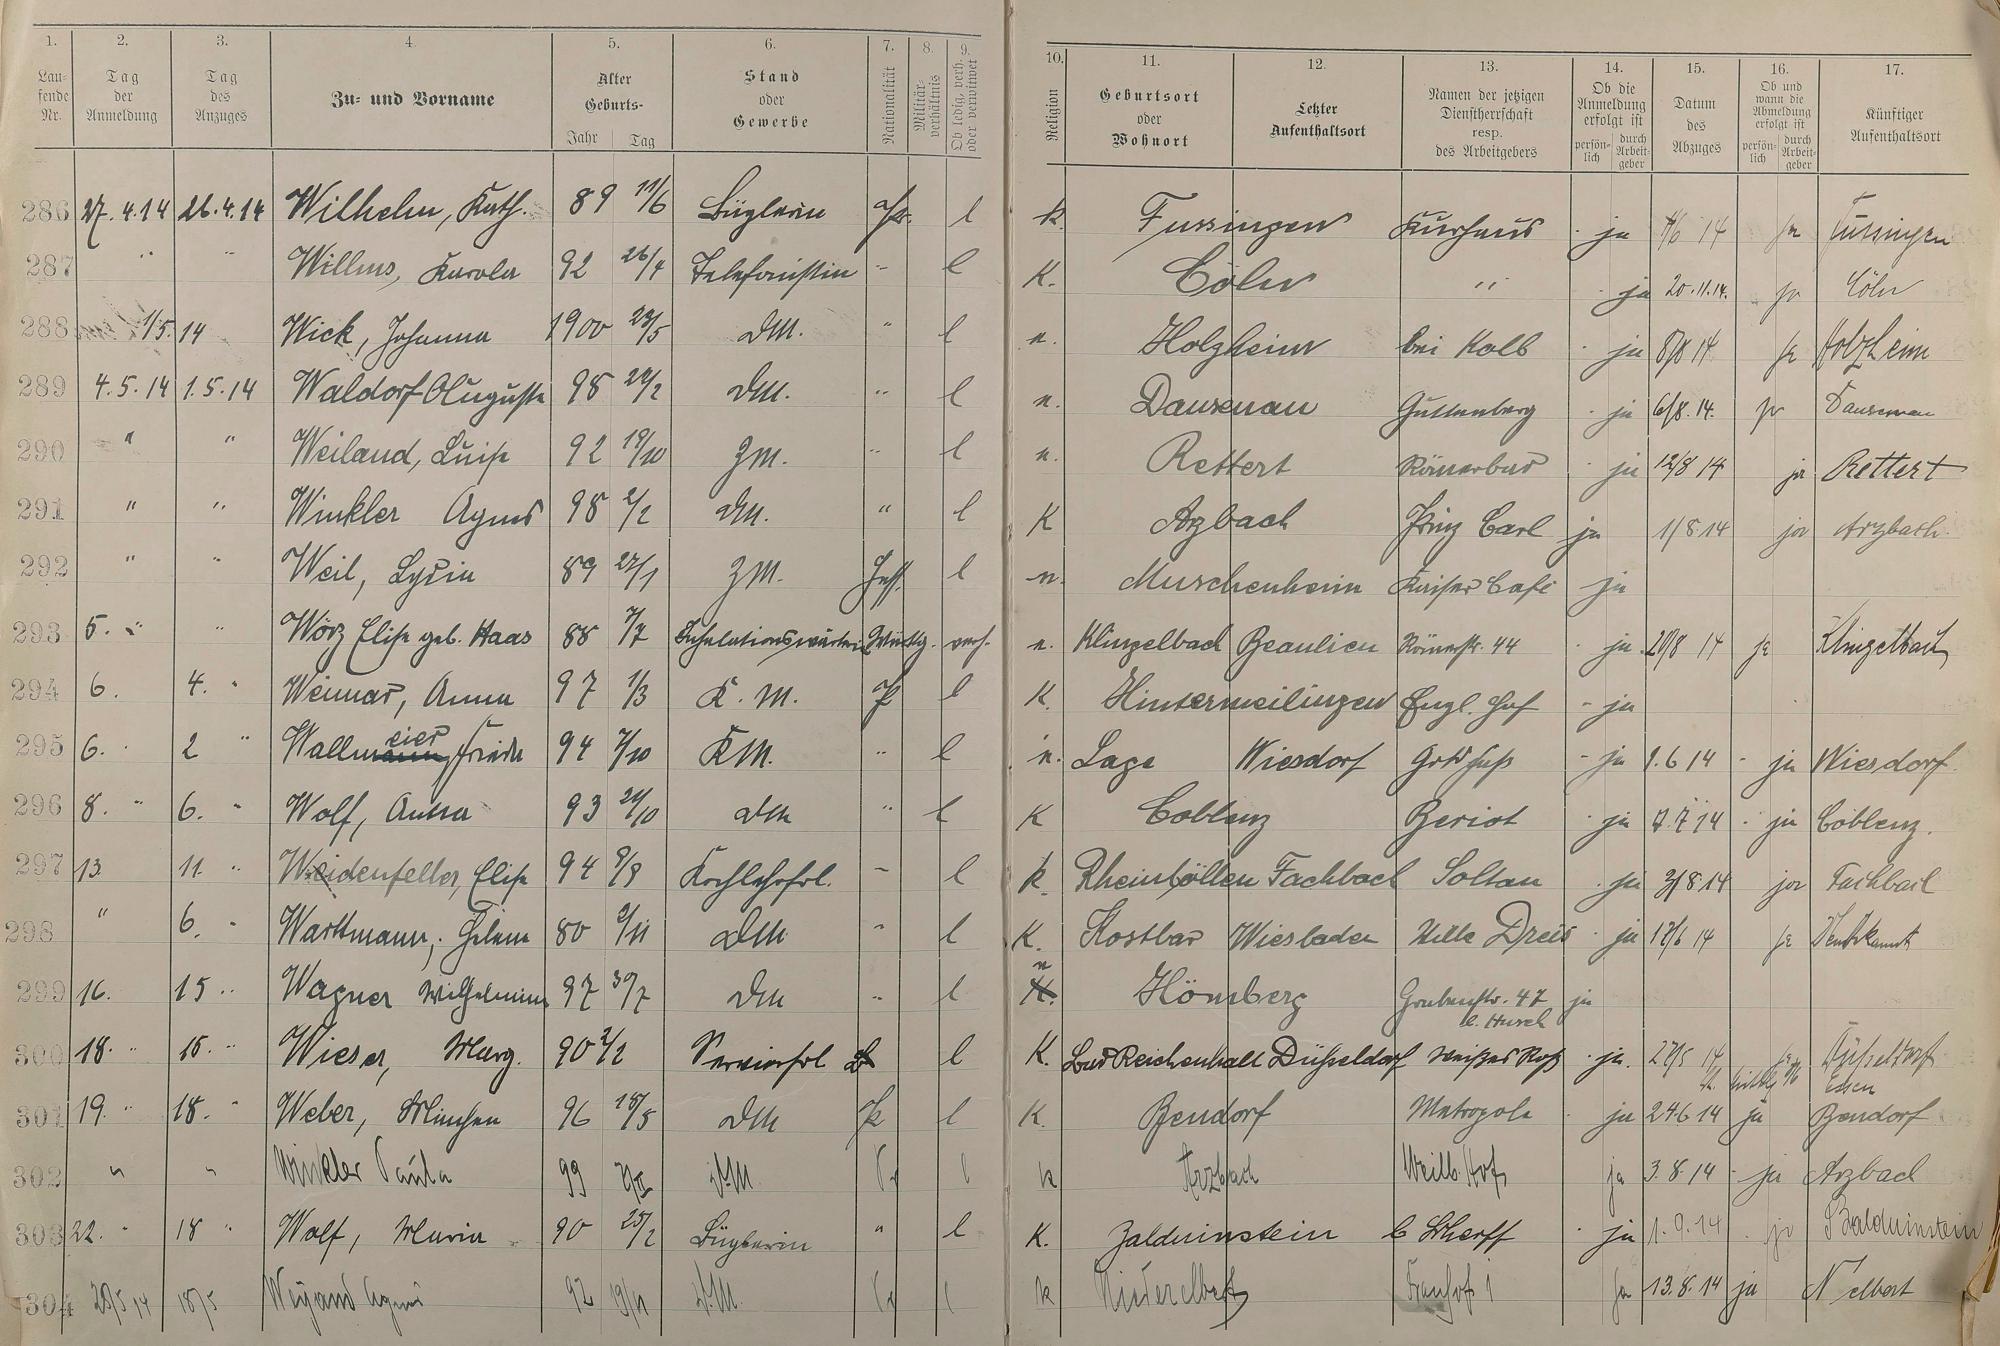 1. 2. 3. 4. 5. 6. 7. 8. 9. 10. 11. 12. 13. 14. 15. 16. 17.
Laufende Nr. Tag der Anmeldung Tag des Anzuges Zu- und Vorname Alter Geburts- Jahr Tag Stand oder Gewerbe Nationalität Militärverhältnis Ob ledig, verh. oder verwitwet Religion Geburtsort oder Wohnort Letzter Aufenthaltsort Namen der jetzigen Dienstherrschaft resp. des Arbeitgebers Ob die Anmeldung erfolgt ist persönlich durch Arbeitgeber Datum des Abzuges Ob und wann die Abmeldung erfolgt ist persönlich durch Arbeitgeber Künftiger Aufenthaltsort
286 27.4.14 26.4.14 Wilhelm, Kath. 89 11/6 Büglerin Pr. l k. Fussingen Kurhaus · ja 14 ja Fussingen
287 " " Willms, Karola 92 26/4 Telefonistin " l K. Cöln " · ja 20.11.14. ja Cöln
288 1/5. 14 Wick, Johanna 1900 23/5 DM. " l e. Holzheim bei Kolb · ja 8/8 14 ja Holzheim
289 4.5.14 1.5.14 Waldorf Auguste 98 24/2 DM. " l e. Dausenau Guttenberg · ja 6/8.14. ja Dausenau
290 " " Weiland, Luise 92 19/10 ZM. " l e. Rettert Römerbad · ja 12/8 14 ja Rettert
291 " " Winkler Agnes 98 2/2 DM. " l K Arzbach Prinz Carl ja 1/8.14 ja Arzbach.
292 " " Weil, Lydia 89 27/1 ZM. Hess. l e. Muschenheim Kaiser Café ja
293 5. " " Wörz Elise geb. Haas 88 7/7 Inhalationswärterin Württbg. verh. e. Klingelbach Beaulieu Römerstr. 44 · ja 20/8 14 ja Klingelbach
294 6. 4. " Weimar, Anna 97 1/3 K.M. P l K. Hintermeilingen Engl. Hof - ja
295 6. · 2 " Wallmeier, Frieda 94 7/10 KM. " l e. Lage Wiesdorf Goldfuß - ja 1.6 14 - ja Wiesdorf.
296 8. " 6. " Wolf, Anna 93 24/10 DM " l K Coblenz Beriot · ja 7.7 14 · ja Coblenz.
297 13. 11. " Weidenfeller, Elise 94 8/8 Kochlehrfrl. – l k. Rheinböllen Fachbach Soltau · ja 3/8 14 ja Fachbach
298 " 6. " Warttmann, Helene 80 2/11 DM. " l K. Kostbar Wiesbaden Villa Dreis · ja 17/6 14 ja
299 16. 15 " Wagner Wilhelmine 97 30/7 DM " l e Hömberg Grabenstr. 47 b. Husch ja
300 18. " 15. " Wieser, Marg. 90 2/2 Servierfrl l K. Bad Reichenhall Düsseldorf weißes Roß · ja. 27/5 14 Düsseldorf Essen
301 19. " 18. " Weber, Minchen 96 18/5 DM Pr l K. Bendorf Metropole · ja 24.6 14 ja Bendorf
302 " " Winkler Paula 99 D.M. Pr l k Arzbach Weilb. Hof ja 3.8.14 - ja Arzbach
303 22. " 18 " Wolf, Maria 90 25/2 Büglerin " l K. Balduinstein b Scherff · ja 1.9.14 · ja Balduinstein
304 20/5 14 18/5 Weyand Agnes 92 19/11 D.M. Pr l k Niederelbert ja 13.8.14 ja N elbert